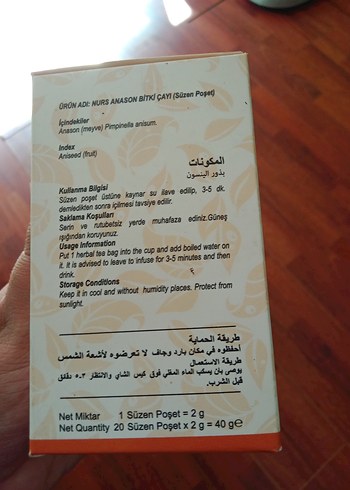 ÜRÜN ADI: NURS ANASON BİTKİ ÇAYI (Süzen Poşet)
İçindekiler
Anason (meyve) Pimpinella anisum.
Index
Aniseed (fruit)
المكونات
بذور اليانسون
Kullanma Bilgisi
Süzen poşet üstüne kaynar su ilave edilip, 3-5 dk.
demledikten sonra içilmesi tavsiye edilir.
Saklama Koşulları
Serin ve rutubetsiz yerde muhafaza ediniz.Güneş
ışığından koruyunuz.
Usage Information
Put 1 herbal tea bag into the cup and add boiled water on
it. It is advised to leave to infuse for 3-5 minutes and then
drink.
Storage Conditions
Keep it in cool and without humidity places. Protect from
sunlight.
طريقة الحماية
أحفظوه في مكان بارد وجاف لا تعرضوه لأشعة الشمس
طريقة الاستعمال
يوصى بأن يسكب الماء المغلي فوق كيس الشاي والانتظار ٣-٥ دقائق
قبل الشرب.
Net Miktar 1 Süzen Poşet = 2 g
Net Quantity 20 Süzen Poşet x 2 g = 40 g℮